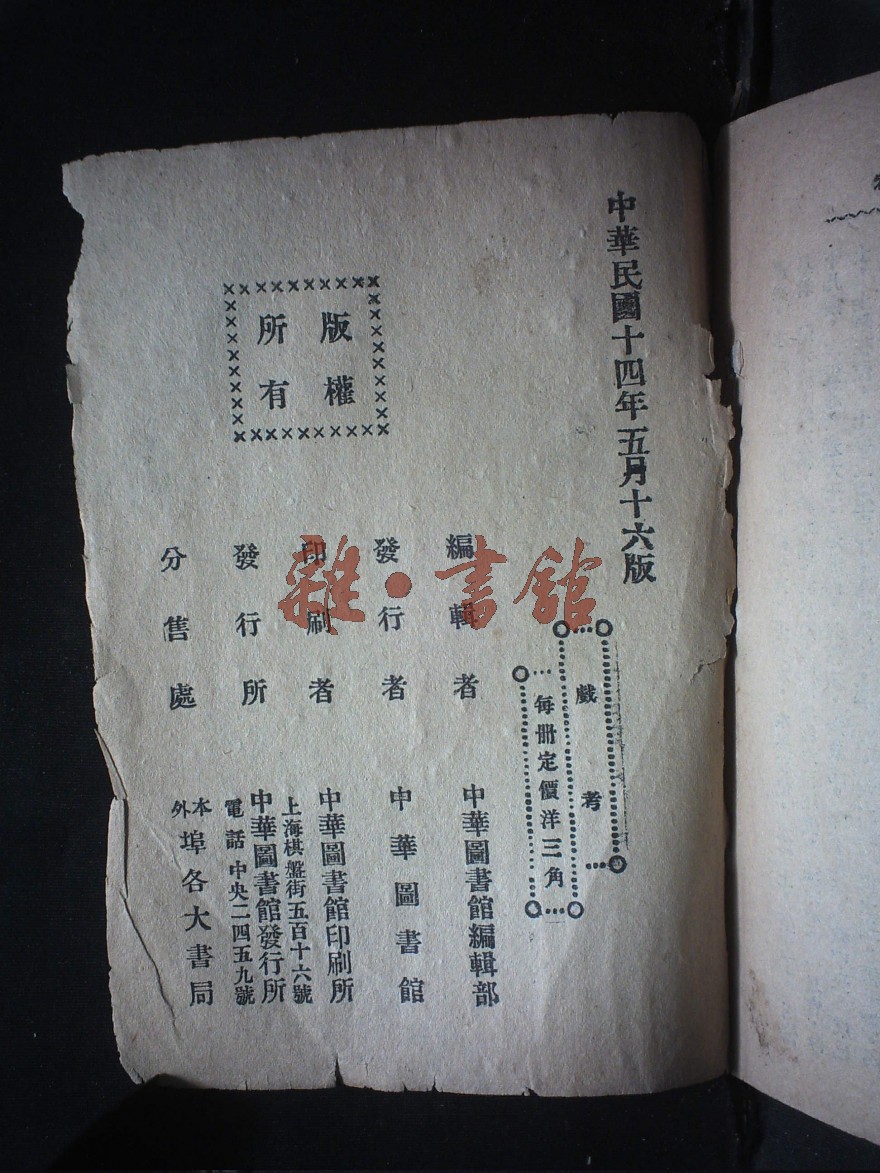 中華民國十四年五月十六版
戲考
每冊定價洋三角
版權
所有
編輯者 中華圖書館編輯部
發行者 中華圖書館
印刷者 中華圖書館印刷所
上海棋盤街五百十六號
發行所 中華圖書館發行所
電話中央二四五九號
分售處 本外埠各大書局
雜·書館